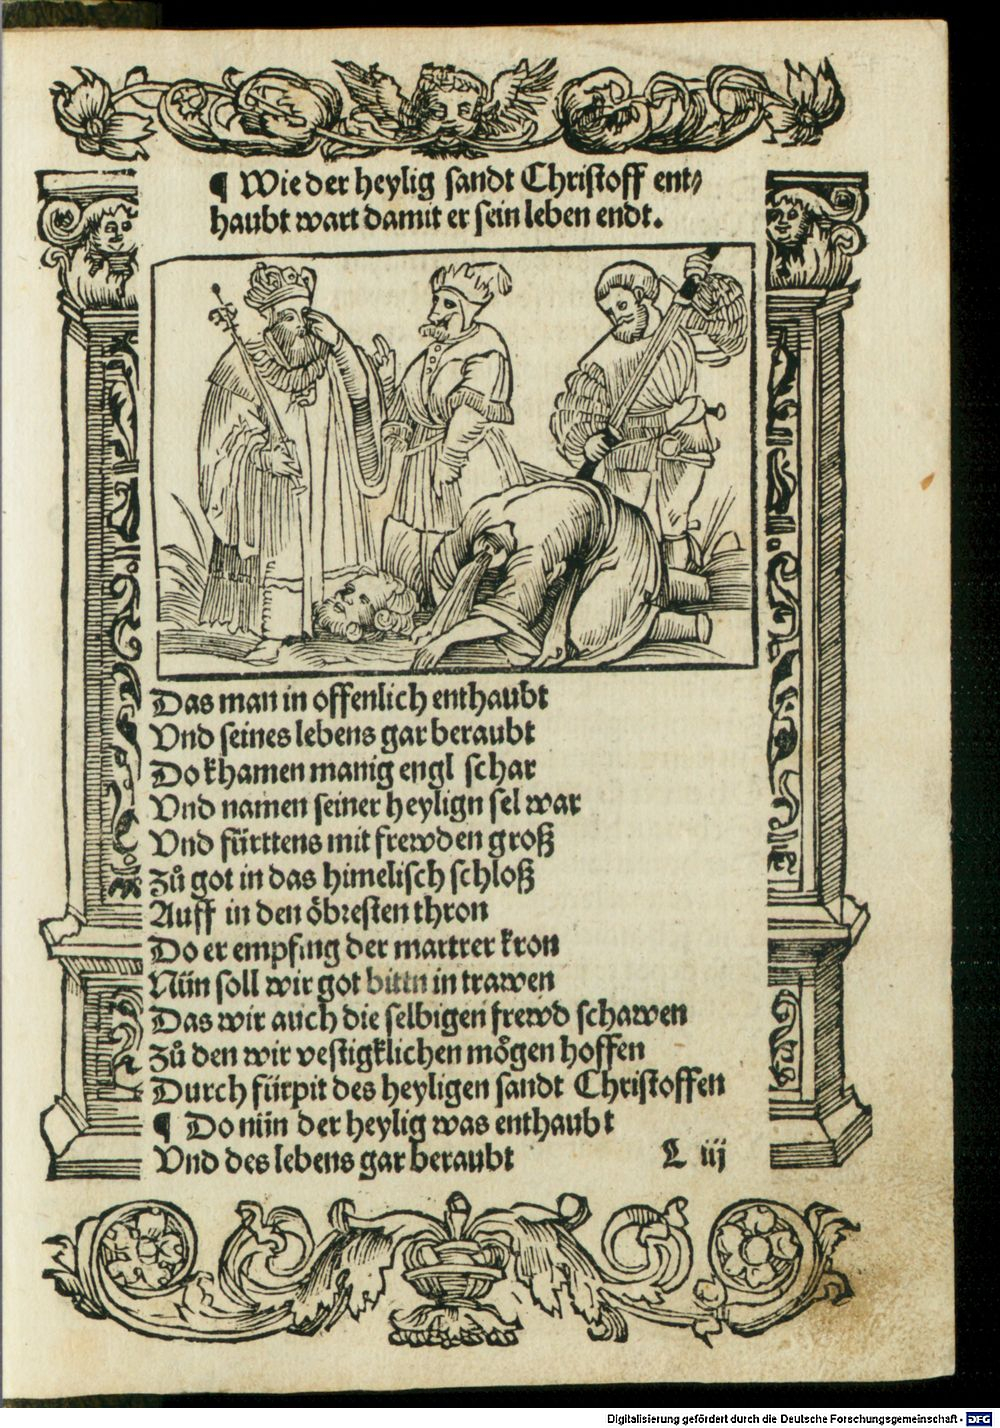 ¶ Wie der heylig sandt Christoff ent⸗
haubt wart damit er sein leben endt.
Das man in offenlich enthaubt
Vnd seines lebens gar beraubt
Do khamen manig engl schar
Vnd namen seiner heylign sel war
Vnd fürttens mit frewden groß
Zů got in das himelisch schloß
Auff in den öbresten thron
Do er empfing der martrer kron
Nün soll wir got bittn in trawen
Das wir auch die selbigen frewd schawen
Zů den wir vestigklichen mögen hoffen
Durch fürpit des heyligen sandt Christoffen
¶ Do nün der heylig was enthaubt
Vnd des lebens gar beraubt
L iij
Digitalisierung gefördert durch die Deutsche Forschungsgemeinschaft - DFG